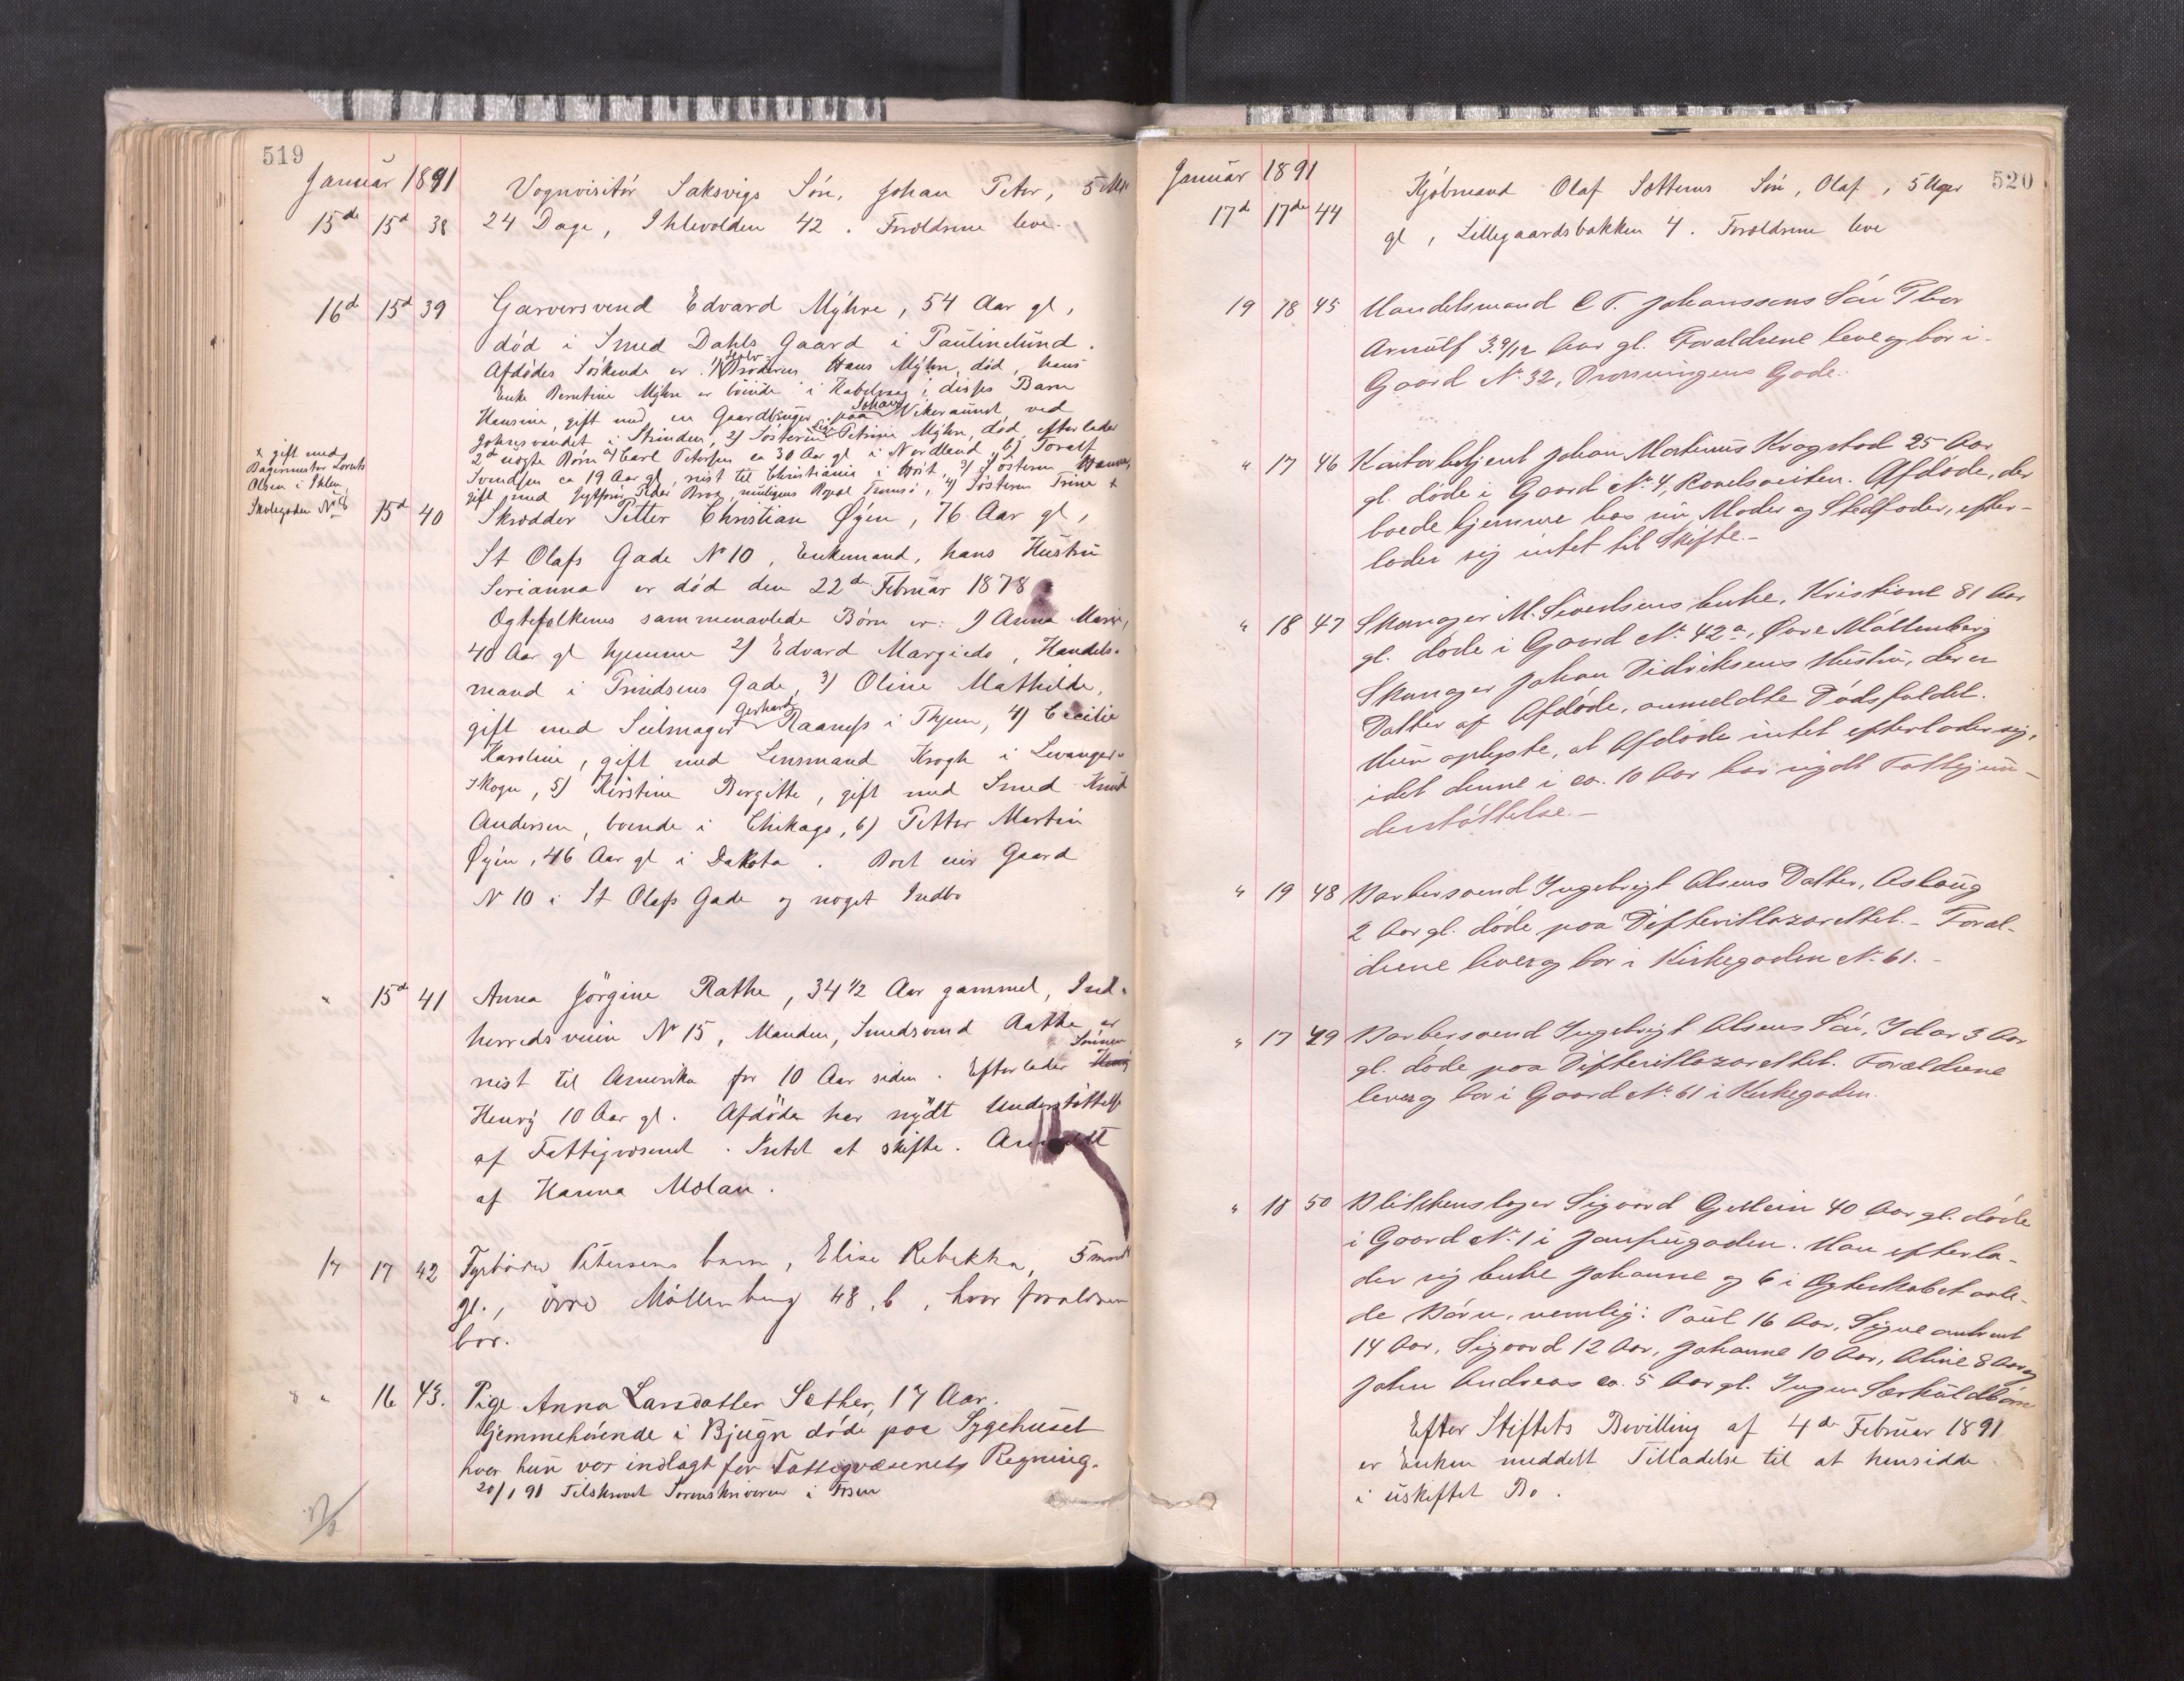 519
Januar 1891
15de 15d 38 Vognvisitør Saksvigs Søn, Johan Peter, 5 Mdr
24 Dage, Ihlevolden 42. Forældrene leve.
16d 15d 39 Garversvend Edvard Myhre, 54 Aar gl,
død i Smed Dahls Gaard i Paulinelund.
Afdødes Søskende er 1) Halvbroderen Hans Myhre, død, hans
Enke Berntine Myhre er boende i Kabelvaag; disses Barn
Hansine, gift med en Gaardbruger Johan paa Vikeraunet ved
Jonsvandet i Strinden, 2) Søsteren Petrine Myhre, død, efterlader
2de uægte Børn a) Carl Petersen ca 30 Aar gl i Nordland, b) Toralf
Svendsen ca 19 Aar gl, reist til Christiania i Høst, 3) Søsteren Hanna,
gift med Peder Brox, muligens Tromsø, 4) Søsteren Trine x
x gift med
Bagermester Lorents
Olsen i Ihlen,
Skolegaden No 8
15d 40 Skrædder Petter Christian Øyen, 76 Aar gl,
St Olafs Gade No 10, Enkemand, hans Hustru
Serianna er død den 22de Februar 1878
Ægtefolkenes sammenavlede Børn er: 1) Anna Marie,
40 Aar gl hjemme 2) Edvard Margido, Handels-
mand i Prindsens Gade, 3) Oline Mathilde,
gift med Seilmager Gerhard Raanes i Thjem, 4) Cecilie
Karoline, gift med Lensmand Krogh i Levanger-
skogn, 5) Kirstine Bergitte, gift med Smed Knut
Andersen, boende i Chikago, 6) Petter Martin
Øyen, 46 Aar gl i Dakota. Boet eier Gaard
N 10 i St Olafs Gade og noget Indbo
" 15d 41 Anna Jørgine Rathe, 34 1/2 Aar gammel, Ind-
herredsveien No 15, Manden, Smedsvend Rathe er
reist til Amerika for 10 Aar siden. Efterlader Sønnen
Henry 10 Aar gl. Afdøde har nydt Understøttelse
af Fattigvæsenet. Intet at skifte. Anmeldt
af Hanna Molan.
17 17 42 Fyrbøder Petersens barn, Elise Rebekka, 5 mndr
gl., øvre Møllenberg 48, b, hvor forældrene
bor.
" 16 43. Pige Anna Larsdatter Sæther, 17 Aar.
hjemmehørende i Bjugn døde paa Sygehuset
hvor hun var indlagt for Fattigvæsenets Regning.
20/1 91 Tilskrevet Sorenskriveren i Fosen
520
Januar 1891
17d 17de 44 Kjøbmand Olaf Sætterns Søn, Olaf, 5 Uger
gl, Lillegaardsbakken 4. Forældrene leve
19 18 45 Handelsmand C T. Johanssens Søn Thor
Arnulf 3 9/12 Aar gl. Forældrene leve og bor i
Gaard No 32, Dronningens Gade.
" 17 46 Kontorbetjent Johan Martinus Krogstad 25 Aar
gl. døde i Gaard No 4, Ravelsveiten. Afdøde, der
boede hjemme hos sin Moder og Stedfader, efter-
lader sig intet til Skifte.-
" 18 47 Skomager M. Sivertsens Enke, Kristiane 81 Aar
gl. døde i Gaard No 42a, Øvre Møllenberg
Skomager Johan Didriksens Hustru, der er
Datter af Afdøde, anmeldte Dødsfaldet.
Hun oplyste, at Afdøde intet efterlader sig,
idet denne i ca. 10 Aar har nydt Fattigun-
derstøttelse.-
" 19 48 Barbersvend Ingebrigt Olsens Datter, Aslaug
2 Aar gl. døde paa Difteritlazarettet.- Foræl-
drene lever og bor i Kirkegaden No 61.-
" 17 49 Barbersvend Ingebrigt Olsens Søn, Idar 3 Aar
gl. døde paa Difteritlazarettet. Forældrene
lever og bor i Gaard No 61 i Kirkegaden.
" 18 50 Blikkenslager Sigvard Gjellein 40 Aar gl. døde
i Gaard No 1 i Jomfrugaden. Han efterla-
der sig Enke Johanne og 6 i Ægteskabet avle-
de Børn, nemlig: Paul 16 Aar, Signe omtrent
14 Aar, Sigvard 12 Aar, Johanne 10 Aar, Aline 8 Aar og
John Andreas ca. 5 Aar gl. Ingen Særkuldbørn
Efter Stiftets Bevilling af 4de Februar 1891
er Enken meddelt Tilladelse til at hensidde
i uskiftet Bo.